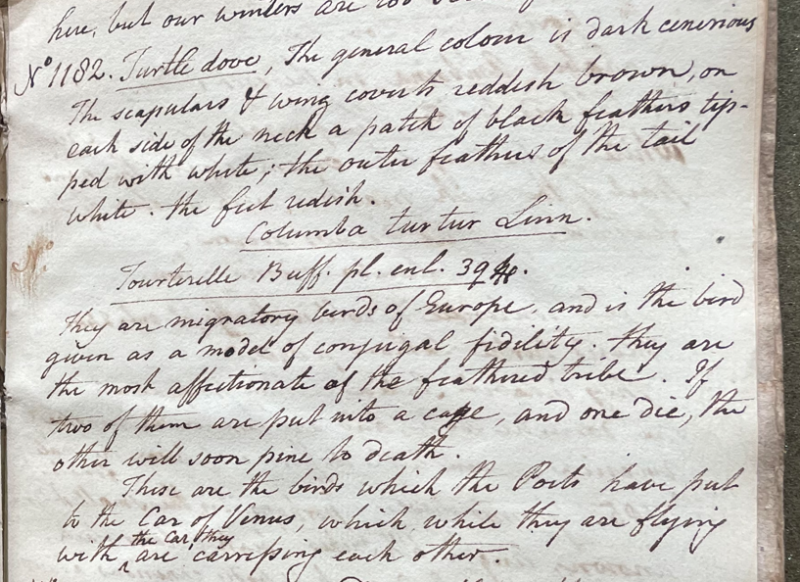 here, but our winters are too
No 1182. Turtle dove, The general colour is dark cenerious
The scapulars & wing coverts reddish brown, on
each side of the neck a patch of black feathers tip-
ped with white; the outer feathers of the tail
white. the feet redish.
Columba turtur Linn.
Tourterelle Buff. pl. enl. 394.
they are migratory birds of Europe, and is the bird
given as a model of conjugal fidility. they are
the most affectionate of the feathered tribe. If
two of them are put into a cage, and one die, the
other will soon pine to death.
These are the birds which the Poets have put
to the Car of Venus, which, while they are flying
with the Car, they are carressing each other.